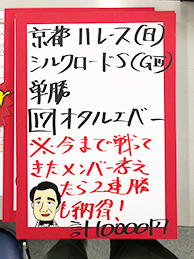 京都11レース(日)
シルクロードS(GⅢ)
単勝
17 オタルエバー
※今まで戦って
きたメンバー考え
たら2連勝
も納得!
計10000円